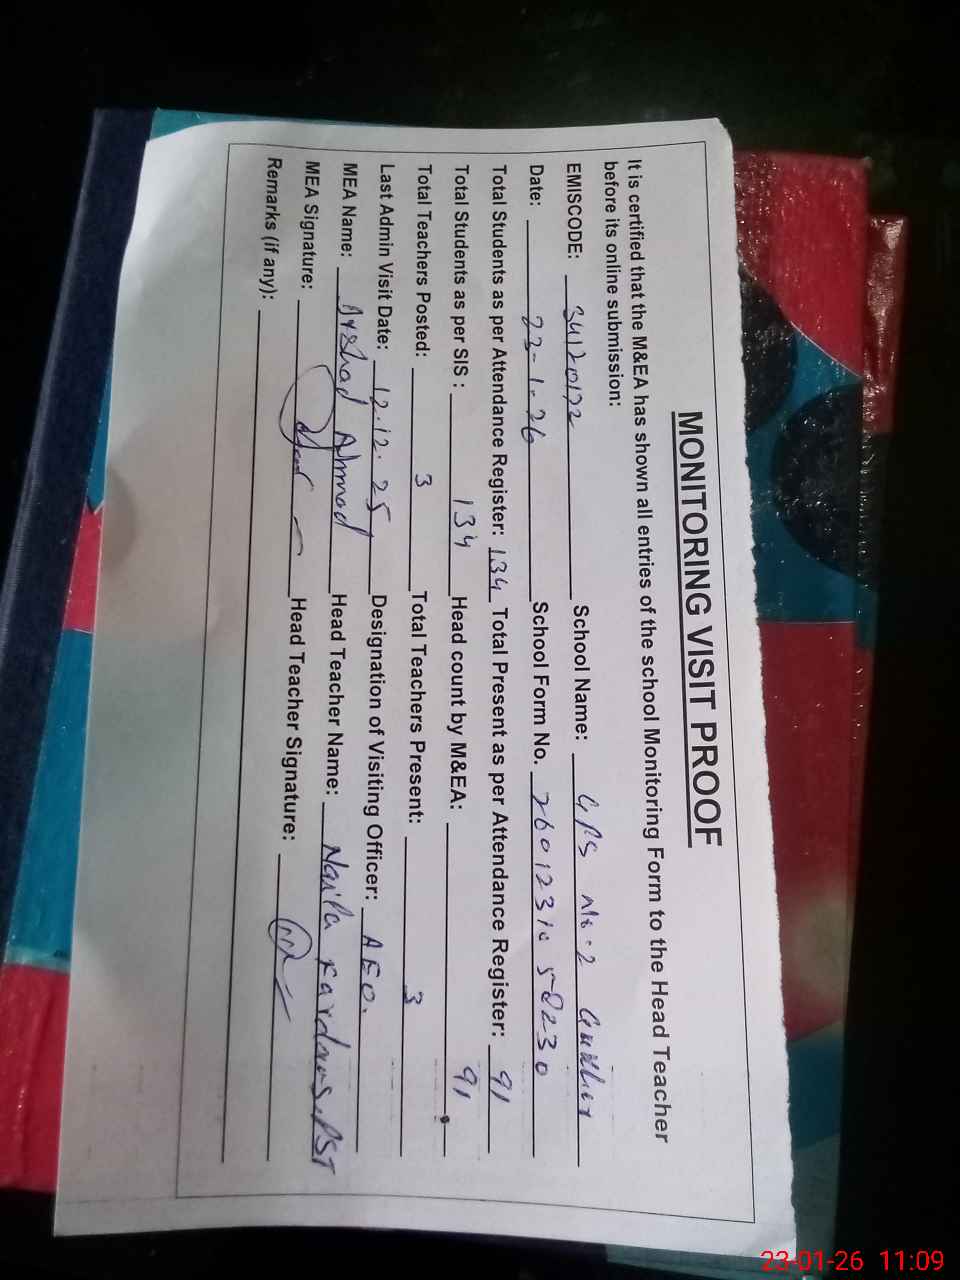 MONITORING VISIT PROOF
It is certified that the M&EA has shown all entries of the school Monitoring Form to the Head Teacher
before its online submission:
EMISCODE: 34120172 School Name: GPS No.2
Date: 23-1-26 School Form No. 26012310 58230
Total Students as per Attendance Register: 134 Total Present as per Attendance Register: 91
Total Students as per SIS : 134 Head count by M&EA: 91
Total Teachers Posted: 3 Total Teachers Present: 3
Last Admin Visit Date: 12.12.25 Designation of Visiting Officer: AEO.
MEA Name: Arshad Ahmad Head Teacher Name: Naila Fardous, PST
MEA Signature: Head Teacher Signature:
Remarks (if any):
23-01-26 11:09